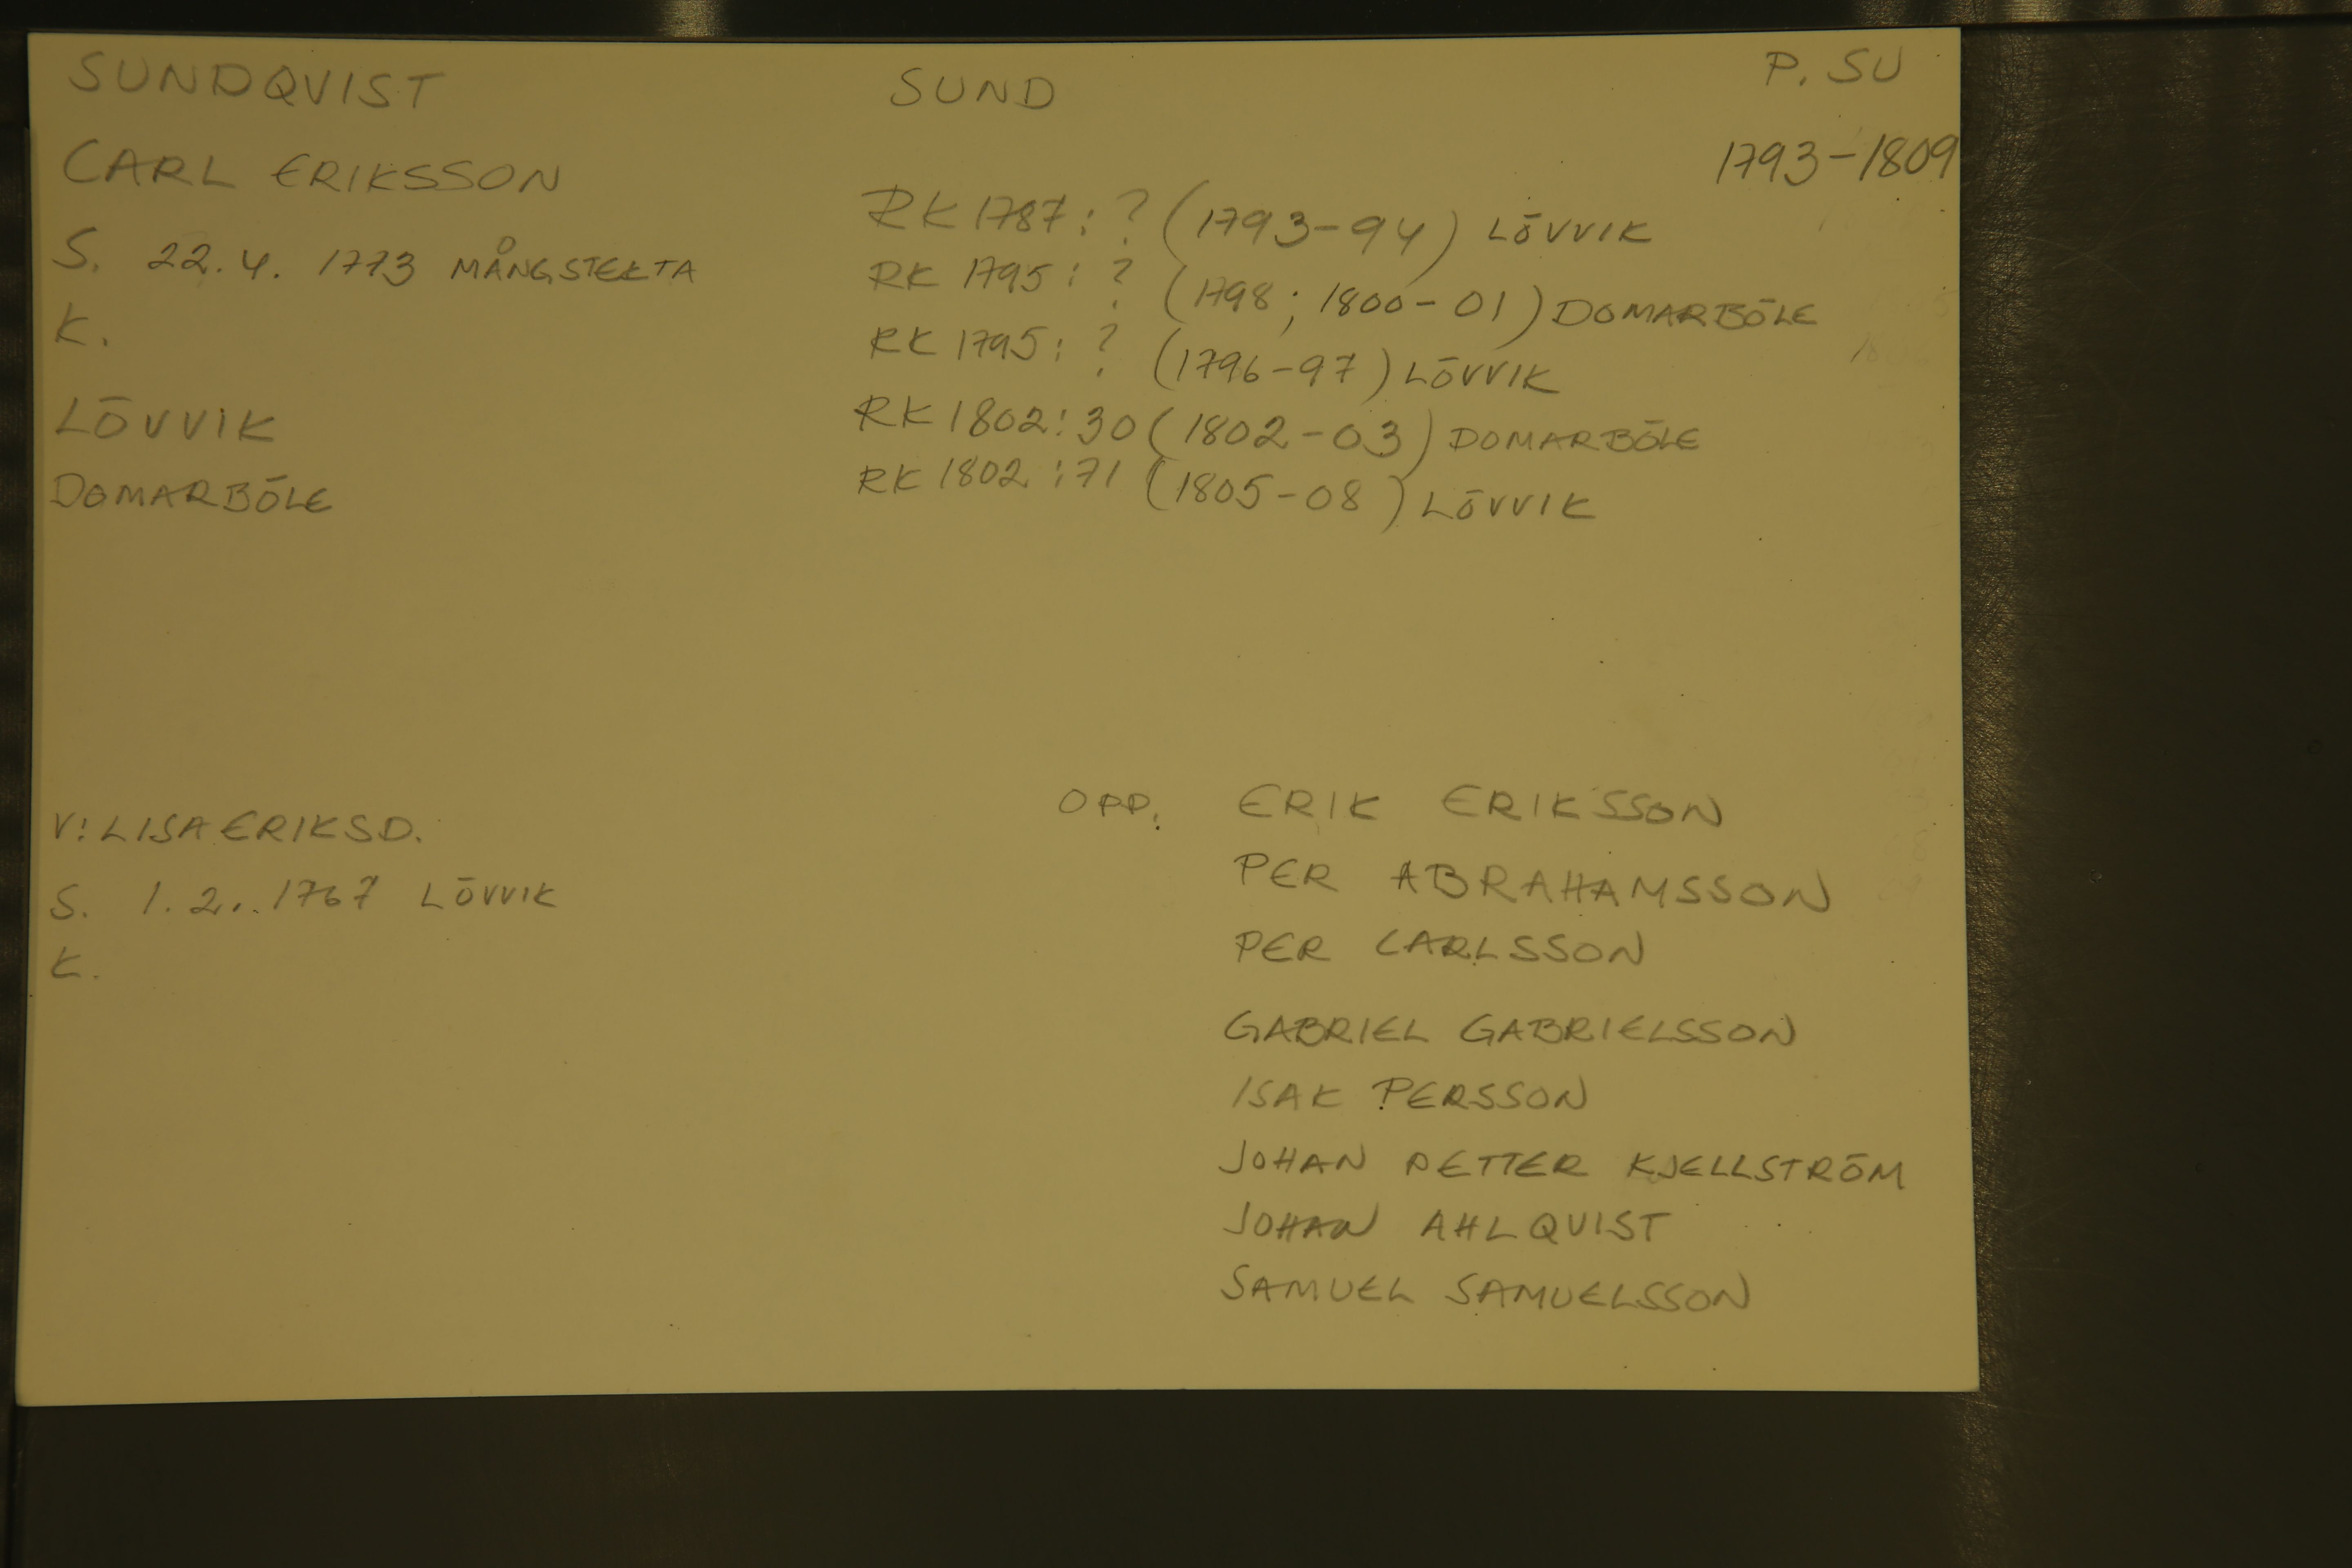 SUNDQVIST
CARL ERIKSSON
S. 22.4. 1773 MÅNGSTEKTA
K.
LÖVVIK
DOMARBÖLE
SUND
P. SU
1793-1809
RK 1787: ? (1793-94) LÖVVIK
RK 1795: ? (1798; 1800-01) DOMARBÖLE
RK 1795: ? (1796-97) LÖVVIK
RK 1802: 30 (1802-03) DOMARBÖLE
RK 1802: 71 (1805-08) LÖVVIK
V: LISA ERIKSD.
S. 1.2. 1767 LÖVVIK
K.
OPP. ERIK ERIKSSON
PER ABRAHAMSSON
PER CARLSSON
GABRIEL GABRIELSSON
ISAK PERSSON
JOHAN PETTER KJELLSTRÖM
JOHAN AHLQVIST
SAMUEL SAMUELSSON